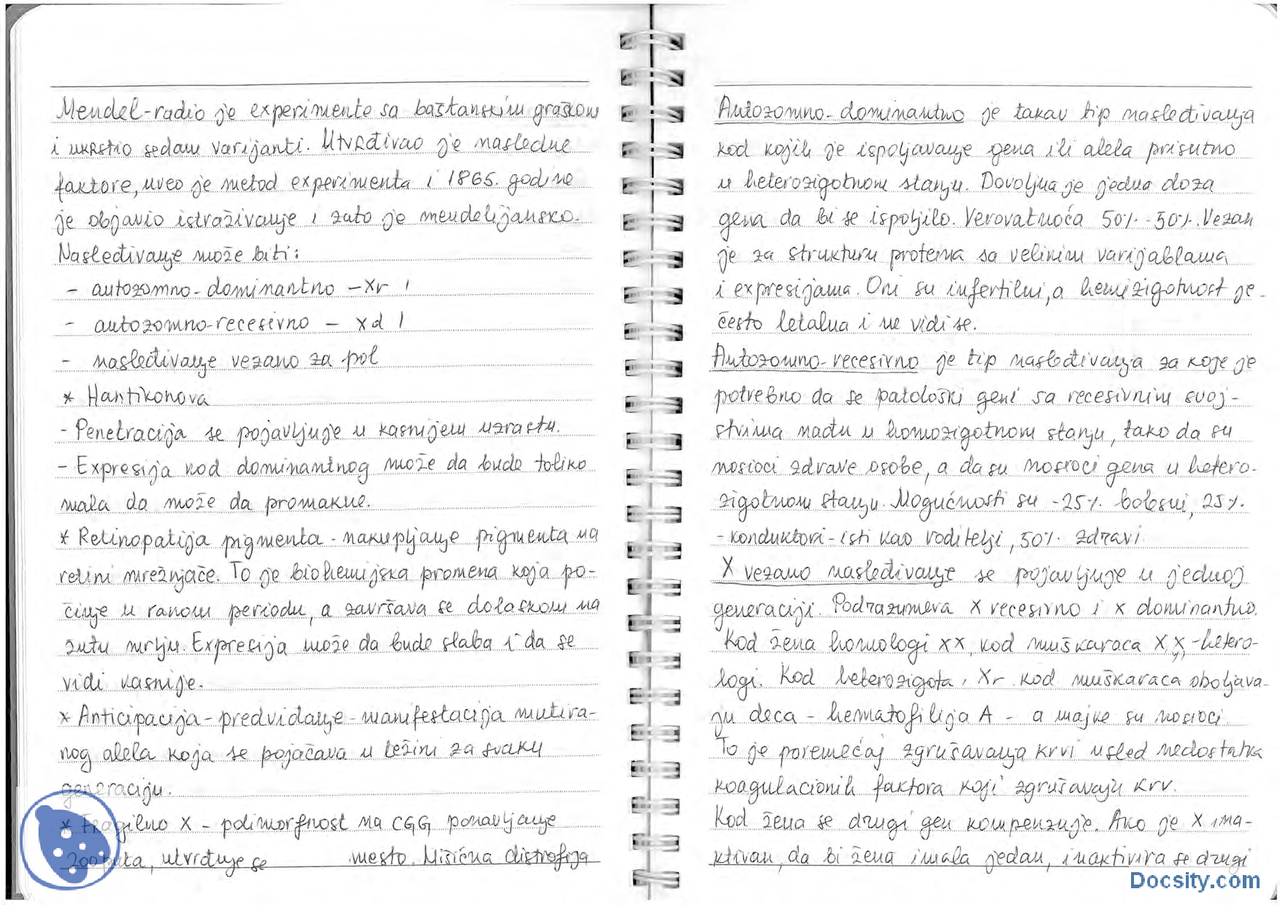 Mendel-radio je experimente sa baštanskim graškom
i ukrstio sedam varijanti. Utvrđivao je nasledne
faktore, uveo je metod experimenta i 1865. godine
je objavio istraživanje i zato je mendelijansko.
Nasleđivanje može biti:
- autozomno-dominantno - Xr
- autozomno-recesivno - Xd
- nasleđivanje vezano za pol
* Hantikonova
- Penetracija se pojavljuje u kasnijem uzrastu.
- Expresija kod dominantnog može da bude toliko
mala da može da promakne.
* Retinopatija pigmenta - nakupljanje pigmenta na
retini mrežnjače. To je biohemijska promena koja po-
činje u ranom periodu, a završava se dolaskom na
žutu mrlju. Expresija može da bude slaba i da se
vidi kasnije.
* Anticipacija - predviđanje - manifestacija mutira-
nog alela koja se pojačava u težini za svaku
generaciju.
* Fragilno X - polimorfnost na CGG ponavljanje
200 puta, utvrđuje se mesto. Mišićna distrofija
Autozomno-dominantno je takav tip nasleđivanja
kod kojih je ispoljavanje gena ili alela prisutno
u heterozigotnom stanju. Dovoljna je jedna doza
gena da bi se ispoljilo. Verovatnoća 50% - 50%. Vezan
je za strukturu proteina sa velikim varijablama
i expresijama. Oni su infertilni, a hemizigotnost je
često letalna i ne vidi se.
Autozomno-recesivno je tip nasleđivanja za koje je
potrebno da se patološki geni sa recesivnim svoj-
stvima nađu u homozigotnom stanju, tako da su
nosioci zdrave osobe, a da su nosioci gena u hetero-
zigotnom stanju. Mogućnosti su - 25% bolesni, 25%
- konduktori - isti kao roditelji, 50% zdravi
X vezano nasleđivanje se pojavljuje u jednoj
generaciji. Podrazumeva X recesivno i X dominantno.
Kod žena homologi xx, kod muškaraca X, - hetero-
logi. Kod heterozigota, Xr kod muškaraca oboljeva-
ju deca - hematofilija A - a majke su nosioci
To je poremećaj zgrušavanja krvi usled nedostatka
koagulacionih faktora koji zgrušavaju krv.
Kod žena se drugi gen kompenzuje. Ako je X ina-
ktivan, da bi žena imala jedan, inaktivira se drugi
Docsity.com